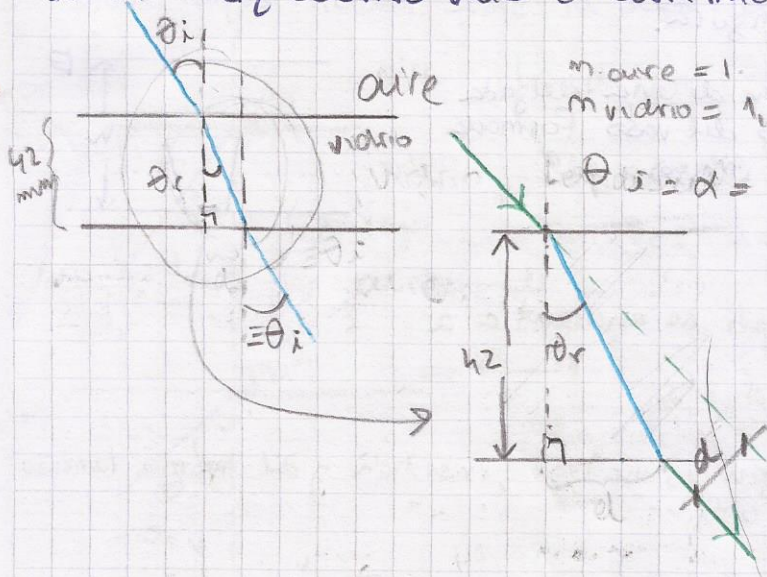 θi
aire
n aire = 1.
n vidrio = 1,
vidrio
42
mm
θr
θ i = α =
≡θi
42
θr
d